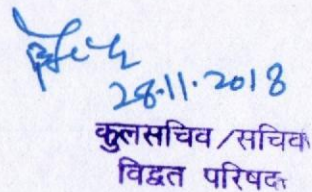 28-11-2018
कुलसचिव/सचिव
विद्वत परिषद